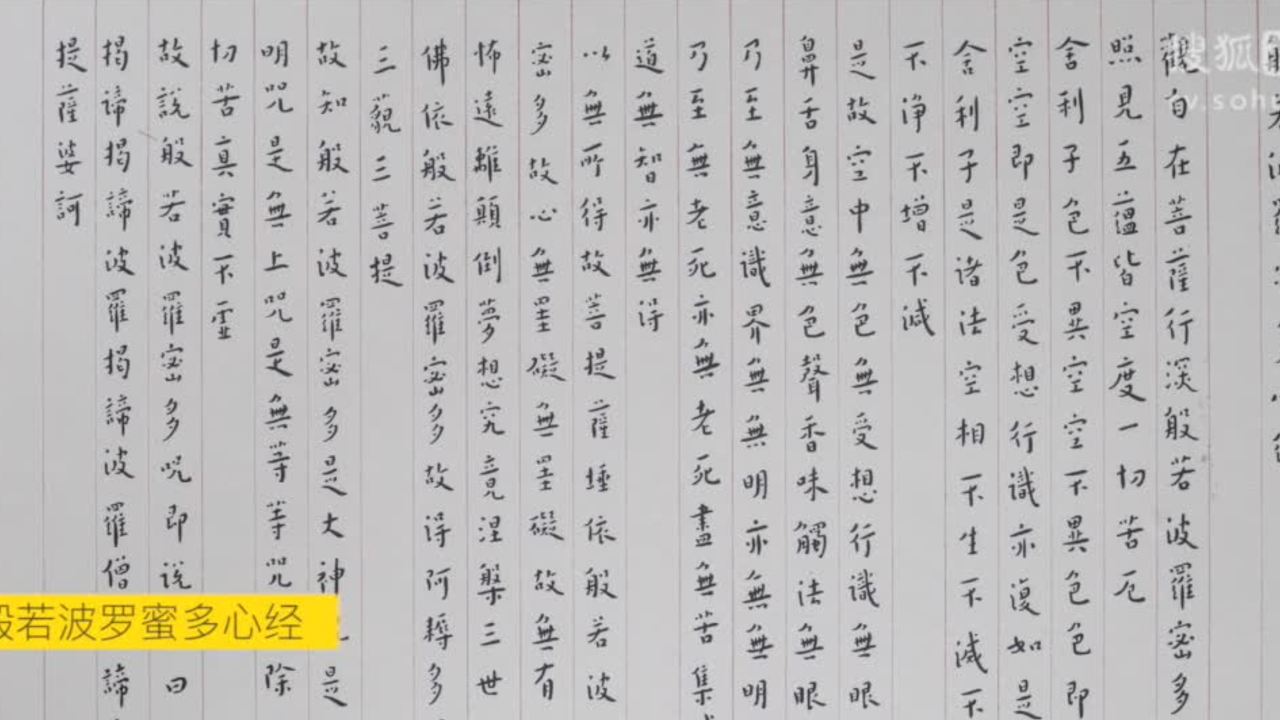 觀自在菩薩行深般若波羅密多
照見五蘊皆空度一切苦厄
舍利子色不異空空不異色色即
空空即是色受想行識亦復如是
舍利子是諸法空相不生不滅不
不淨不增不減
是故空中無色無受想行識無眼
鼻舌身意無色聲香味觸法無眼
乃至無意識界無無明亦無無明
乃至無老死亦無老死盡無苦集
道無智亦無得
以無所得故菩提薩埵依般若波
密多故心無罣礙無罣礙故無有
怖遠離顛倒夢想究竟涅槃三世
佛依般若波羅密多故得阿耨多
三藐三菩提
故知般若波羅密多是大神是
明咒是無上咒是無等等咒除
切苦真實不虛
故說般若波羅密多咒即說曰
揭諦揭諦波羅揭諦波羅僧諦
提薩婆訶
般若波罗蜜多心经
搜狐
tv.sohu